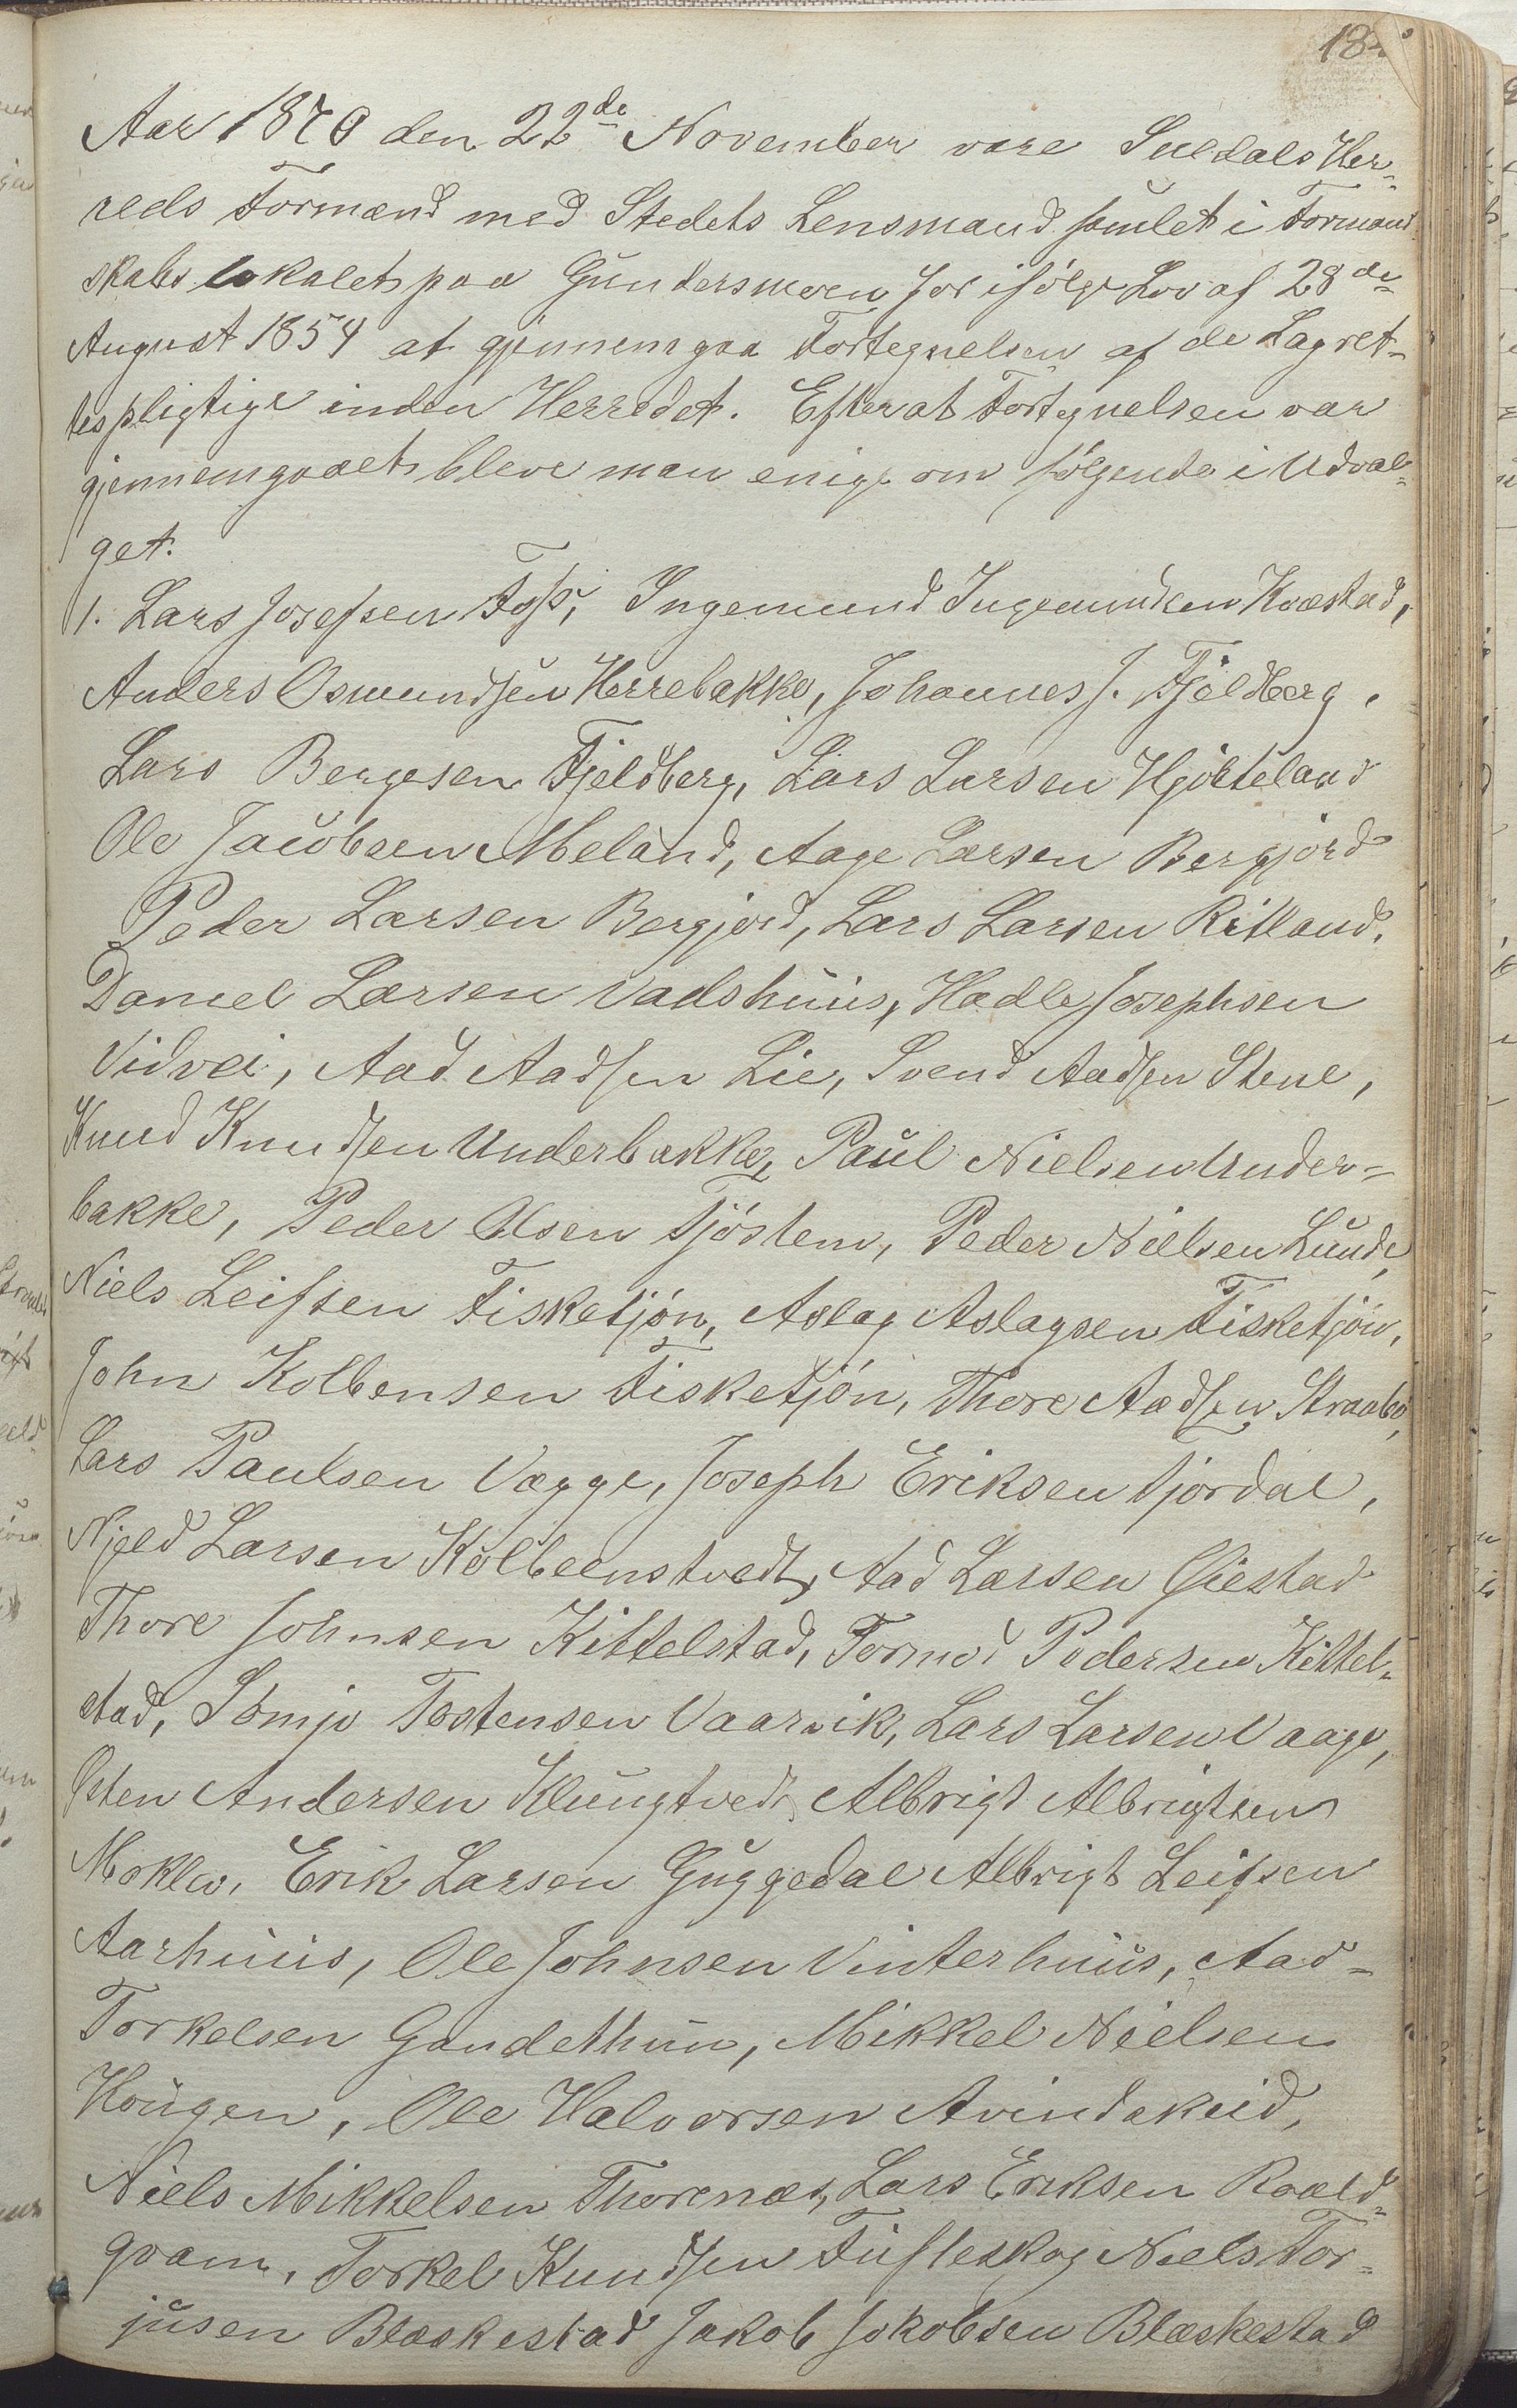 Aar 1870 den 22de November vare Suldals Her-
reds Formænd med Stedets Lensmand samlet i Formand
skabs lokalet paa Gundersmoen for ifölge Lov af 28de
August 1854 at gjennemgaa Fortegnelsen af de Lagret-
tespligtige inden Herredet. Efterat Fortegnelsen var
gjennemgaaet bleve man enige om fölgende i Udval-
get.
1. Lars Josefsen Foss, Ingemund Ingemundsen Kvæstad,
Anders Osmundsen Herrebakke, Johannes J. Fjeldberg,
Lars Bergesen Fjeldberg, Lars Larsen Hjörteland
Ole Jacobsen Meland, Aage Larsen Bergjord
Peder Larsen Bergjord, Lars Larsen Ritland,
Daniel Larsen Vadshuus, Hadle Josephsen
Vidvei, Aad Aadsen Lie, Svend Aadsen Stene,
Knud Knudsen Underbakke, Paul Nielsen Under-
bakke, Peder Olsen Tjöstem, Peder Nielsen Lunde,
Niels Leifsen Fisketjön, Aslag Aslagsen Fisketjön,
John Kolbensen Fisketjön, Thore Aadsen Straabö,
Lars Paulsen Vægge, Joseph Eriksen Fjordal,
Njeld Larsen Kolbeenstvedt, Aad Larsen Qiestad
Thore Johnsen Kittelstad, Tormod Pedersen Kittel-
stad, Sömje Tostensen Vaarvik, Lars Larsen Vaage,
Östen Andersen Klungtvedt, Albrigt Albrigtsen
Mokleiv, Erik Larsen Guggedal Albrigt Leifsen
Aarhuus, Ole Johnsen Vinterhuus, Aad-
Torkelsen Gandethun, Mikkel Nielsen
Hougen, Ole Halvorsen Avindskeid,
Niels Mikkelsen Thorenæs, Lars Eriksen Roald-
qvam, Torkel Knudsen Fisleskog Niels Tor-
jusen Blæskestad Jakob Jakobsen Blæskestad